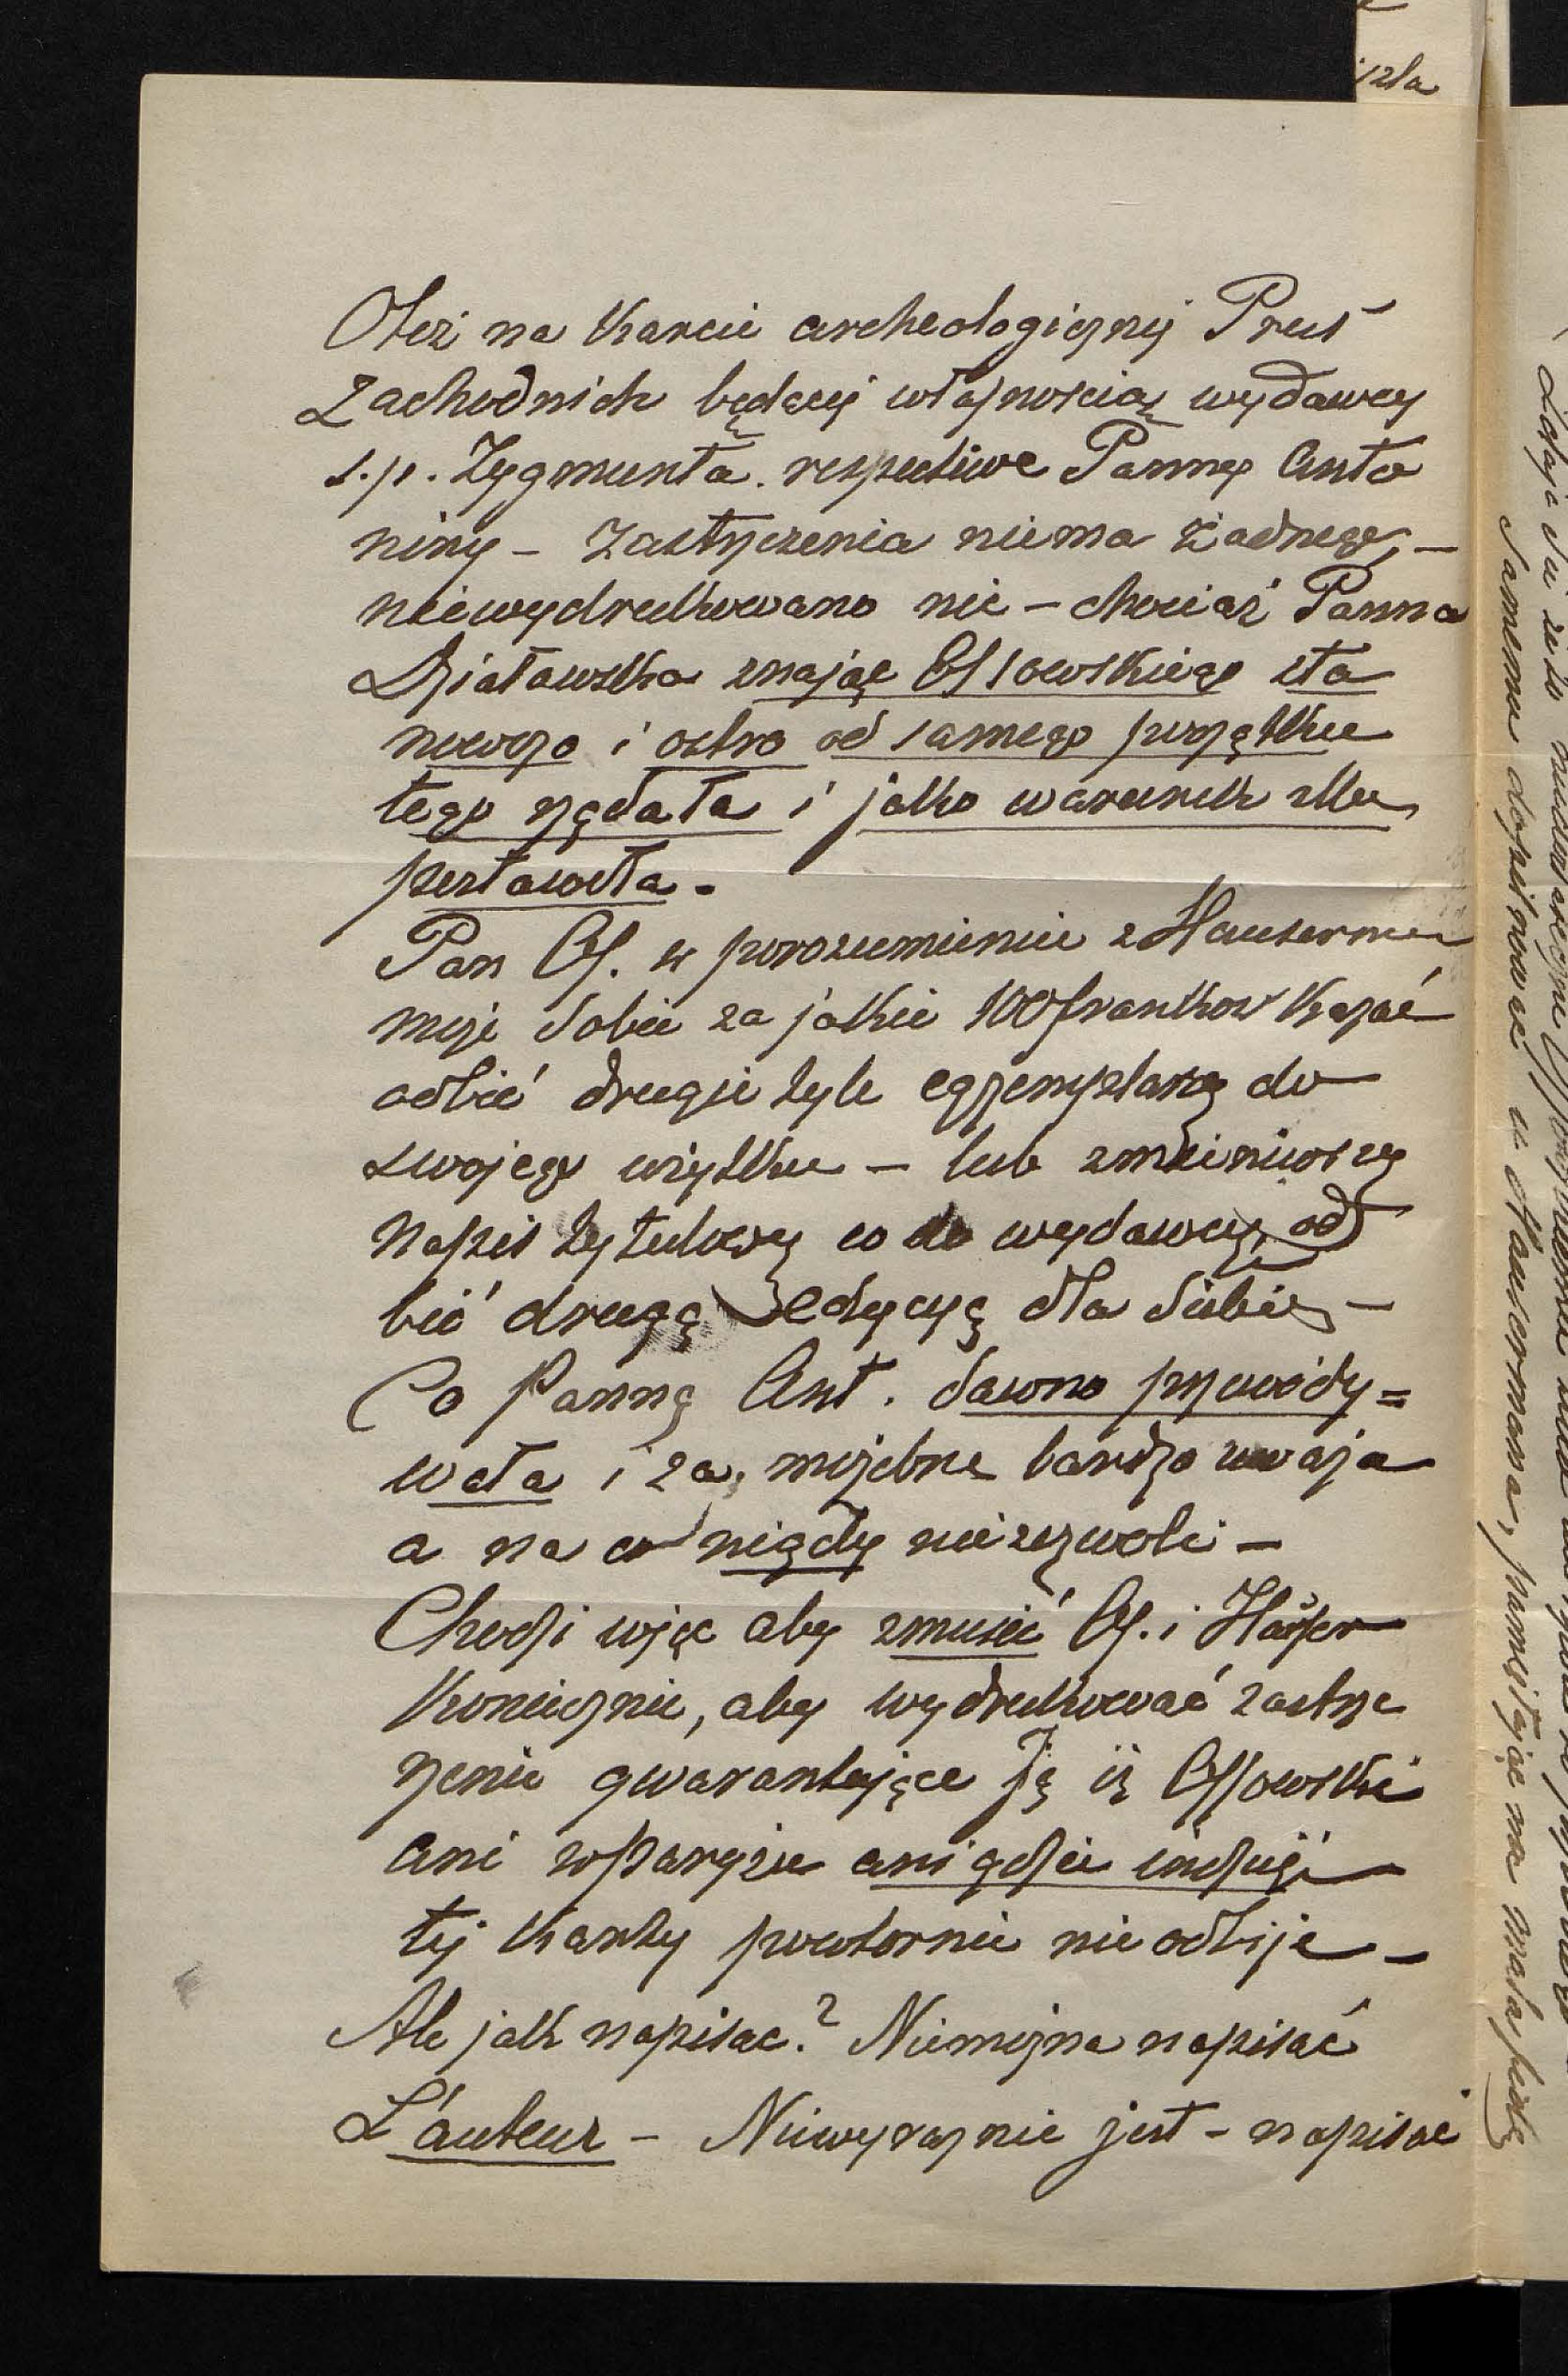 Otoż na Karcie archeologicznej Prus
Zachodnich będącej własnością wydawcy
ś.p. Zygmunta. respective Panny Anto
niny – Zastrzeżenia niema żadnego, –
niewydrukowano nic – chociaż Panna
Działowska znając Ossowskiego sta
nowczo i ostro od samego początku
tego żądała i jako warunek
postawiła.
Pan Oss. w porozumieniu z Hausermanem
może sobie za jakie 100 franków kazać
odbić drugie tyle egzemplarzy do
swojego użytku – lub zmieniwszy
napis tytułowy co do wydawcy, od
bić drugą edycyę dla siebie –
Co Panna Ant. dawno przewidy=
wała i za możebne bardzo uważa
a na co nigdy niezezwoli –
Chodzi więc aby zmusić Oss. i Hauser
koniecznie, aby wydrukować zastrze
żenie gwarantujące Ją iż Ossowski
ani w Paryżu ani gdzie indziej
tej Karty powtornie nie odbije –
Ale jak napisac? Niemożna napisać
L'auteur – Niewyraźnie jest – napisać
szla
Samemu dopilnować u Hausermana, pamiętając na